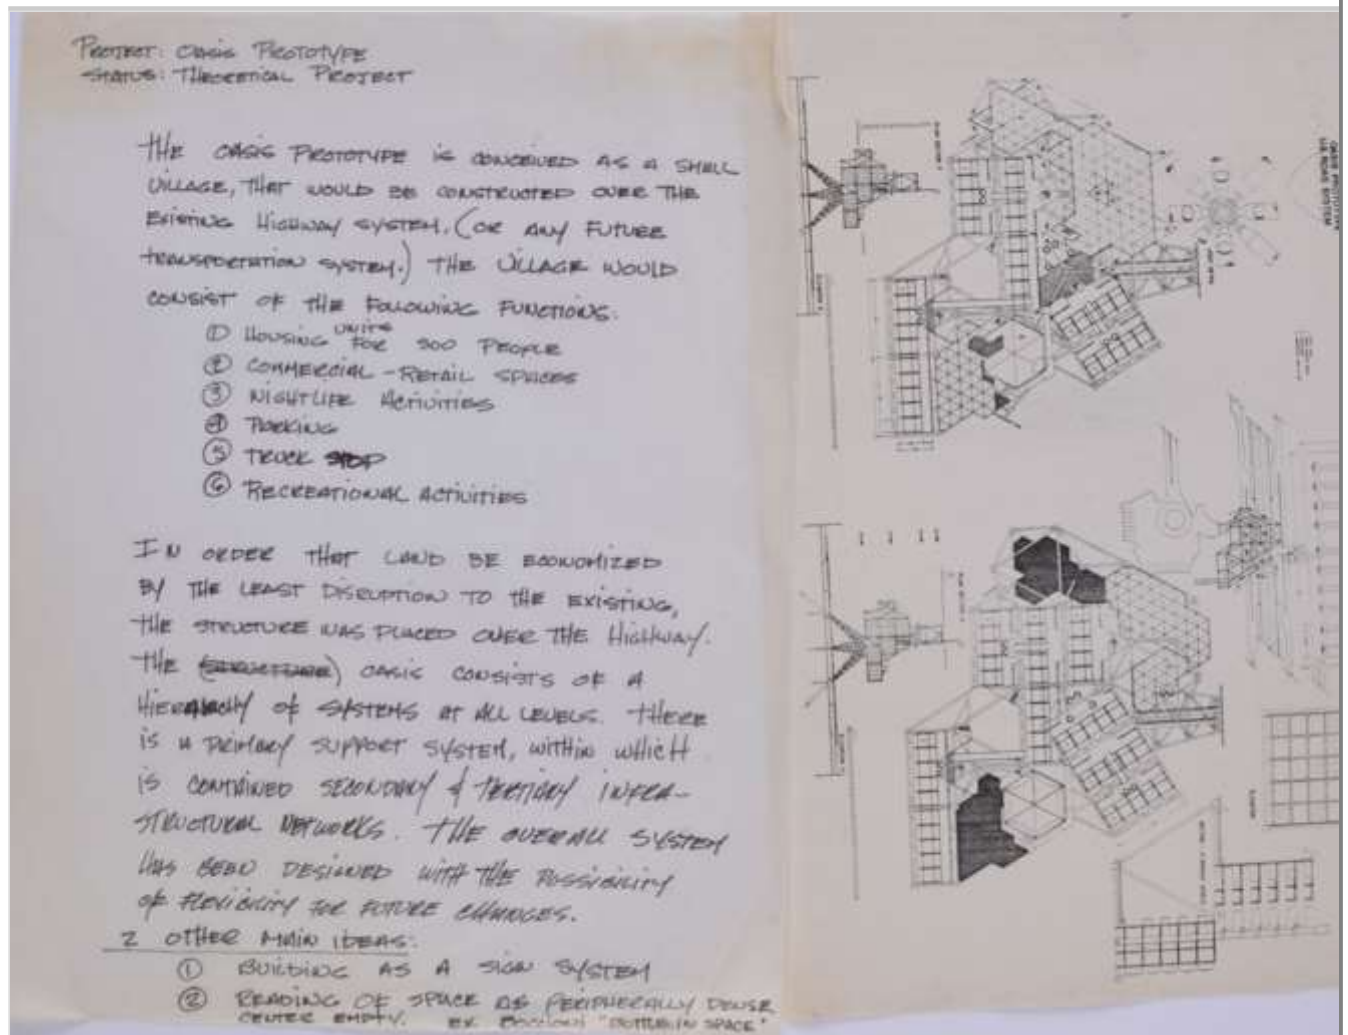 PROJECT: OASIS PROTOTYPE
STATUS: THEORETICAL PROJECT
THE OASIS PROTOTYPE IS CONCEIVED AS A SHELL
VILLAGE, THAT WOULD BE CONSTRUCTED OVER THE
EXISTING HIGHWAY SYSTEM. (OR ANY FUTURE
TRANSPORTATION SYSTEM.) THE VILLAGE WOULD
CONSIST OF THE FOLLOWING FUNCTIONS.
① HOUSING UNITS FOR 500 PEOPLE
② COMMERCIAL - RETAIL SPACES
③ NIGHTLIFE ACTIVITIES
④ PARKING
⑤ TRUCK STOP
⑥ RECREATIONAL ACTIVITIES
IN ORDER THAT LAND BE ECONOMIZED
BY THE LEAST DISRUPTION TO THE EXISTING,
THE STRUCTURE WAS PLACED OVER THE HIGHWAY.
THE (STRUCTURE) OASIS CONSISTS OF A
HIERARCHY OF SYSTEMS AT ALL LEVELS. THERE
IS A PRIMARY SUPPORT SYSTEM, WITHIN WHICH
IS CONTAINED SECONDARY & TERTIARY INFRA-
STRUCTURAL NETWORKS. THE OVERALL SYSTEM
HAS BEEN DESIGNED WITH THE POSSIBILITY
OF FLEXIBILITY FOR FUTURE CHANGES.
2 OTHER MAIN IDEAS:
① BUILDING AS A SIGN SYSTEM
② READING OF SPACE AS PERIPHERALLY DENSE
CENTER EMPTY. EX. BOCCIONI "BOTTLE IN SPACE"
OASIS PROTOTYPE
U.S. ROAD SYSTEM